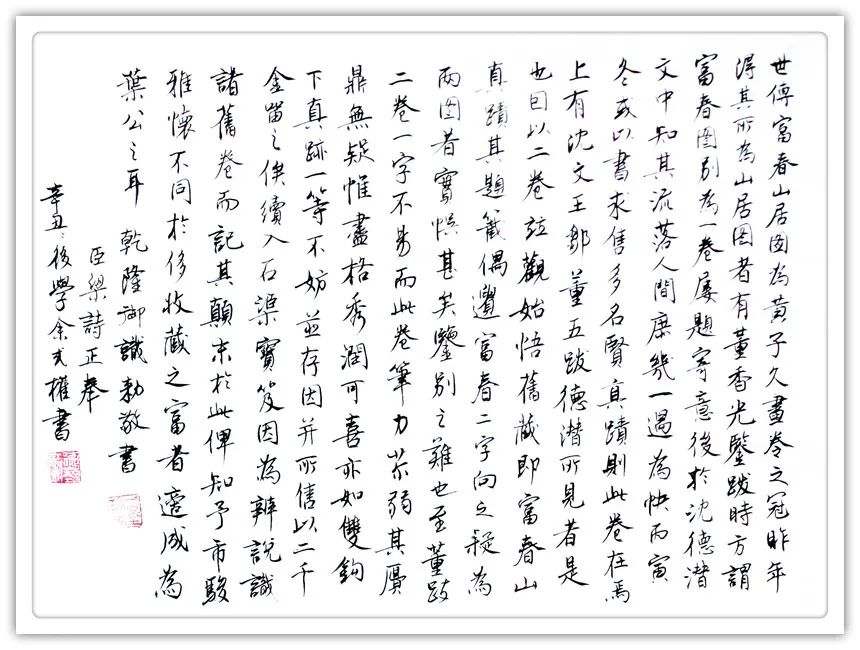 世傳富春山居圖為黃子久畫卷之冠昨年
得其所為山居圖者有董香光鑒跋時方謂
富春圖別為一卷屢題寄意後於沈德潛
文中知其流落人間庶幾一遇為快丙寅
冬或以書求售多名賢真蹟則此卷在焉
上有沈文王鄒董五跋德潛所見者是
也因以二卷竝觀始悟舊藏即富春山
真蹟其題籤偶遺富春二字向之疑為
兩圖者實悞甚矣鑒別之難也至董跋
二卷一字不易而此卷筆力苶弱其贋
鼎無疑惟畫格秀潤可喜亦如雙鉤
下真跡一等不妨並存因并所售以二千
金留之俟續入石渠寶笈因為辨說識
諸舊卷而記其顛末於此俾知予市駿
雅懷不同於侈收藏之富者適成為
葉公之耳 乾隆御識勅敬書
臣梁詩正奉
辛丑後學余弍權書